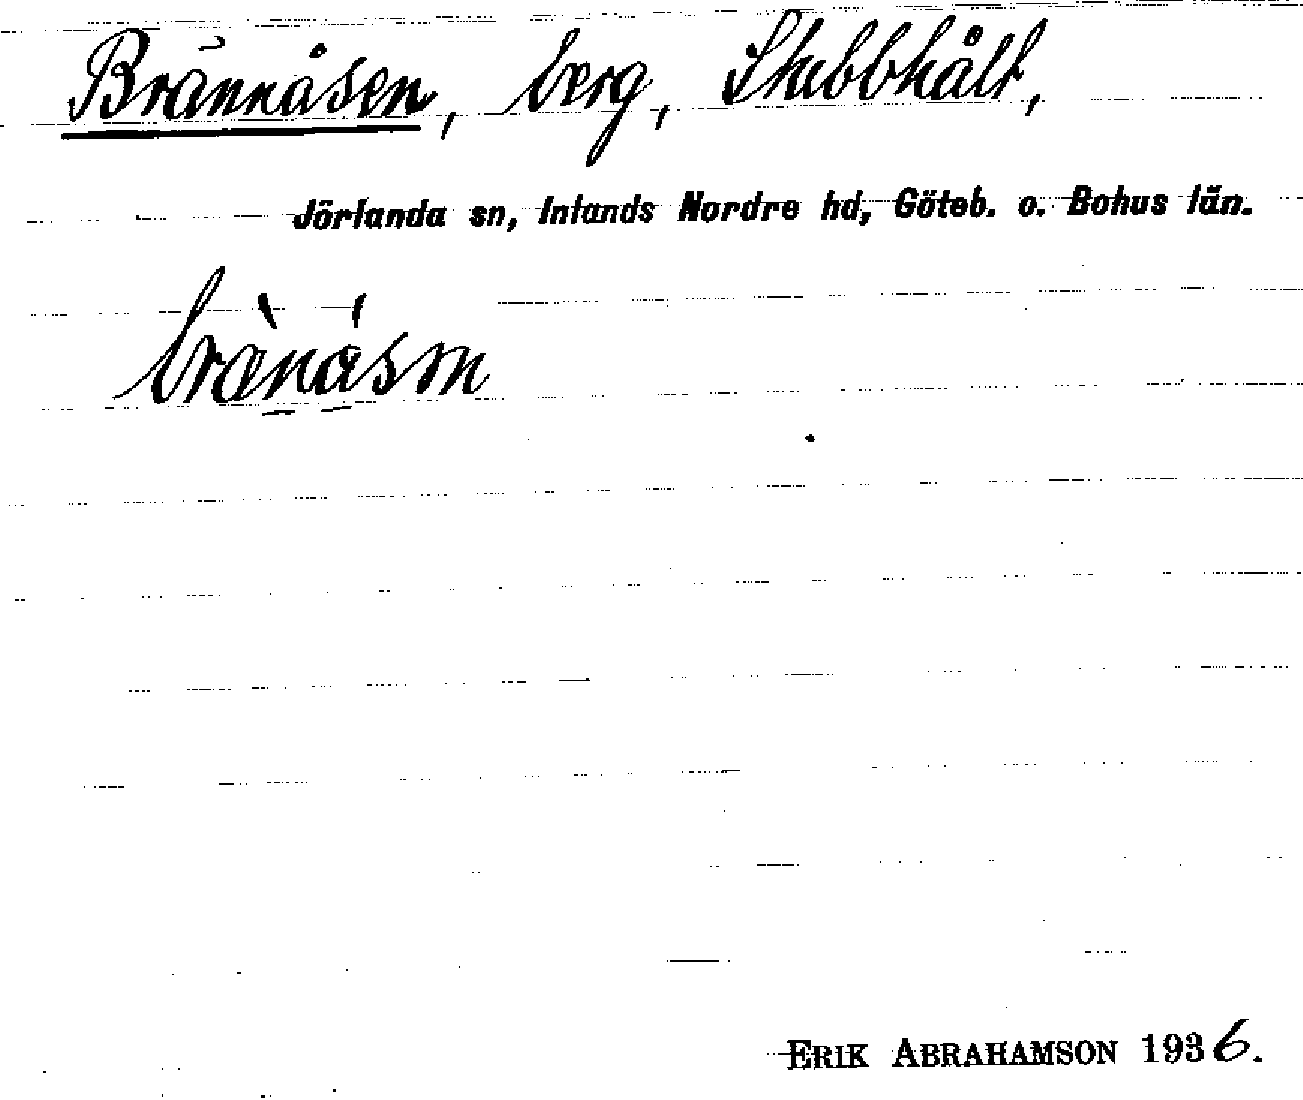 Brännåsen, berg, Stubbhålt,
Jörlanda sn, Inlands Nordre hd, Göteb. o. Bohus län.
brä̀nåsm
ERIK ABRAHAMSON 1936.